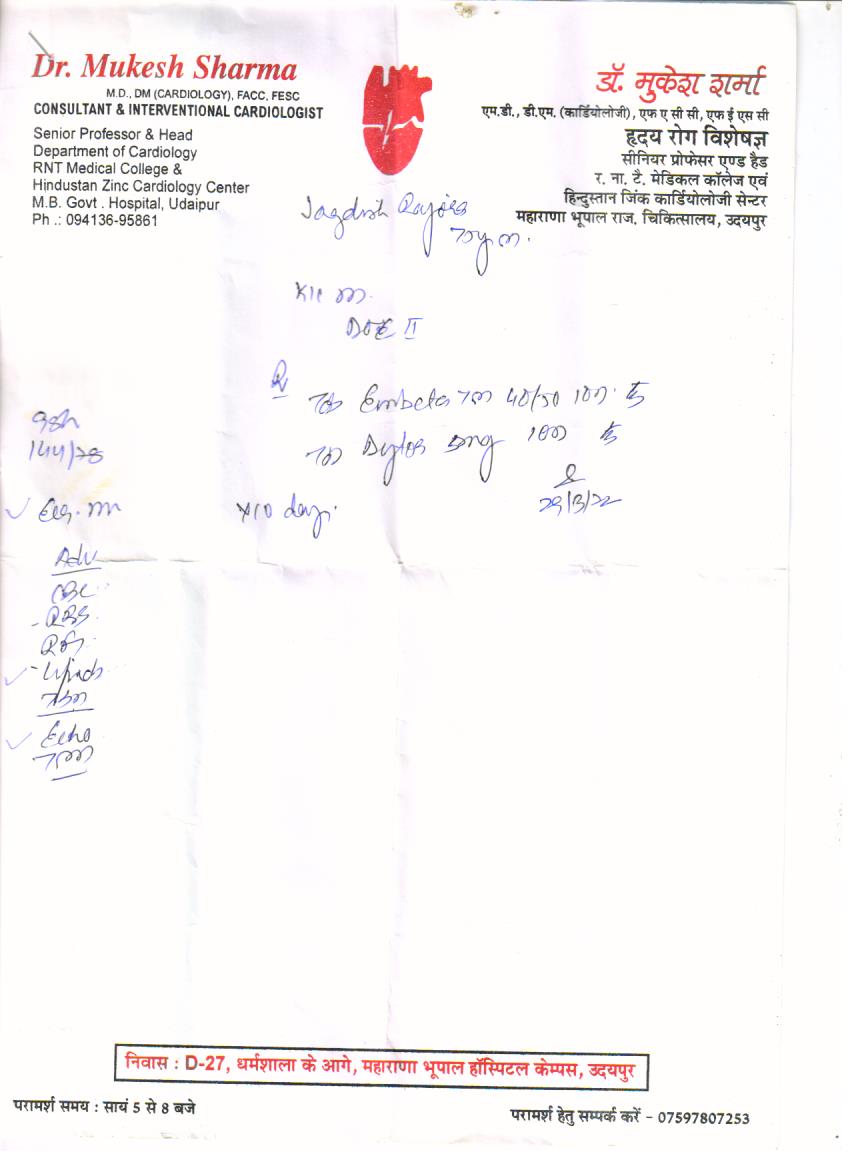 Dr. Mukesh Sharma
M.D., DM (CARDIOLOGY), FACC, FESC
CONSULTANT & INTERVENTIONAL CARDIOLOGIST
Senior Professor & Head
Department of Cardiology
RNT Medical College &
Hindustan Zinc Cardiology Center
M.B. Govt . Hospital, Udaipur
Ph .: 094136-95861
डॉ. मुकेश शर्मा
एम.डी., डी.एम. (कार्डियोलोजी), एफ ए सी सी, एफ ई एस सी
हृदय रोग विशेषज्ञ
सीनियर प्रोफेसर एण्ड हैड
र. ना. टै. मेडिकल कॉलेज एवं
हिन्दुस्तान जिंक कार्डियोलोजी सेन्टर
महाराणा भूपाल राज. चिकित्सालय, उदयपुर
Jagdish
DOE II
40/50
Dytor 5mg
29/3/22
x10 days.
Adv
CBC
RBS
Lipids
Echo
निवास : D-27, धर्मशाला के आगे, महाराणा भूपाल हॉस्पिटल केम्पस, उदयपुर
परामर्श समय : सायं 5 से 8 बजे
परामर्श हेतु सम्पर्क करें - 07597807253